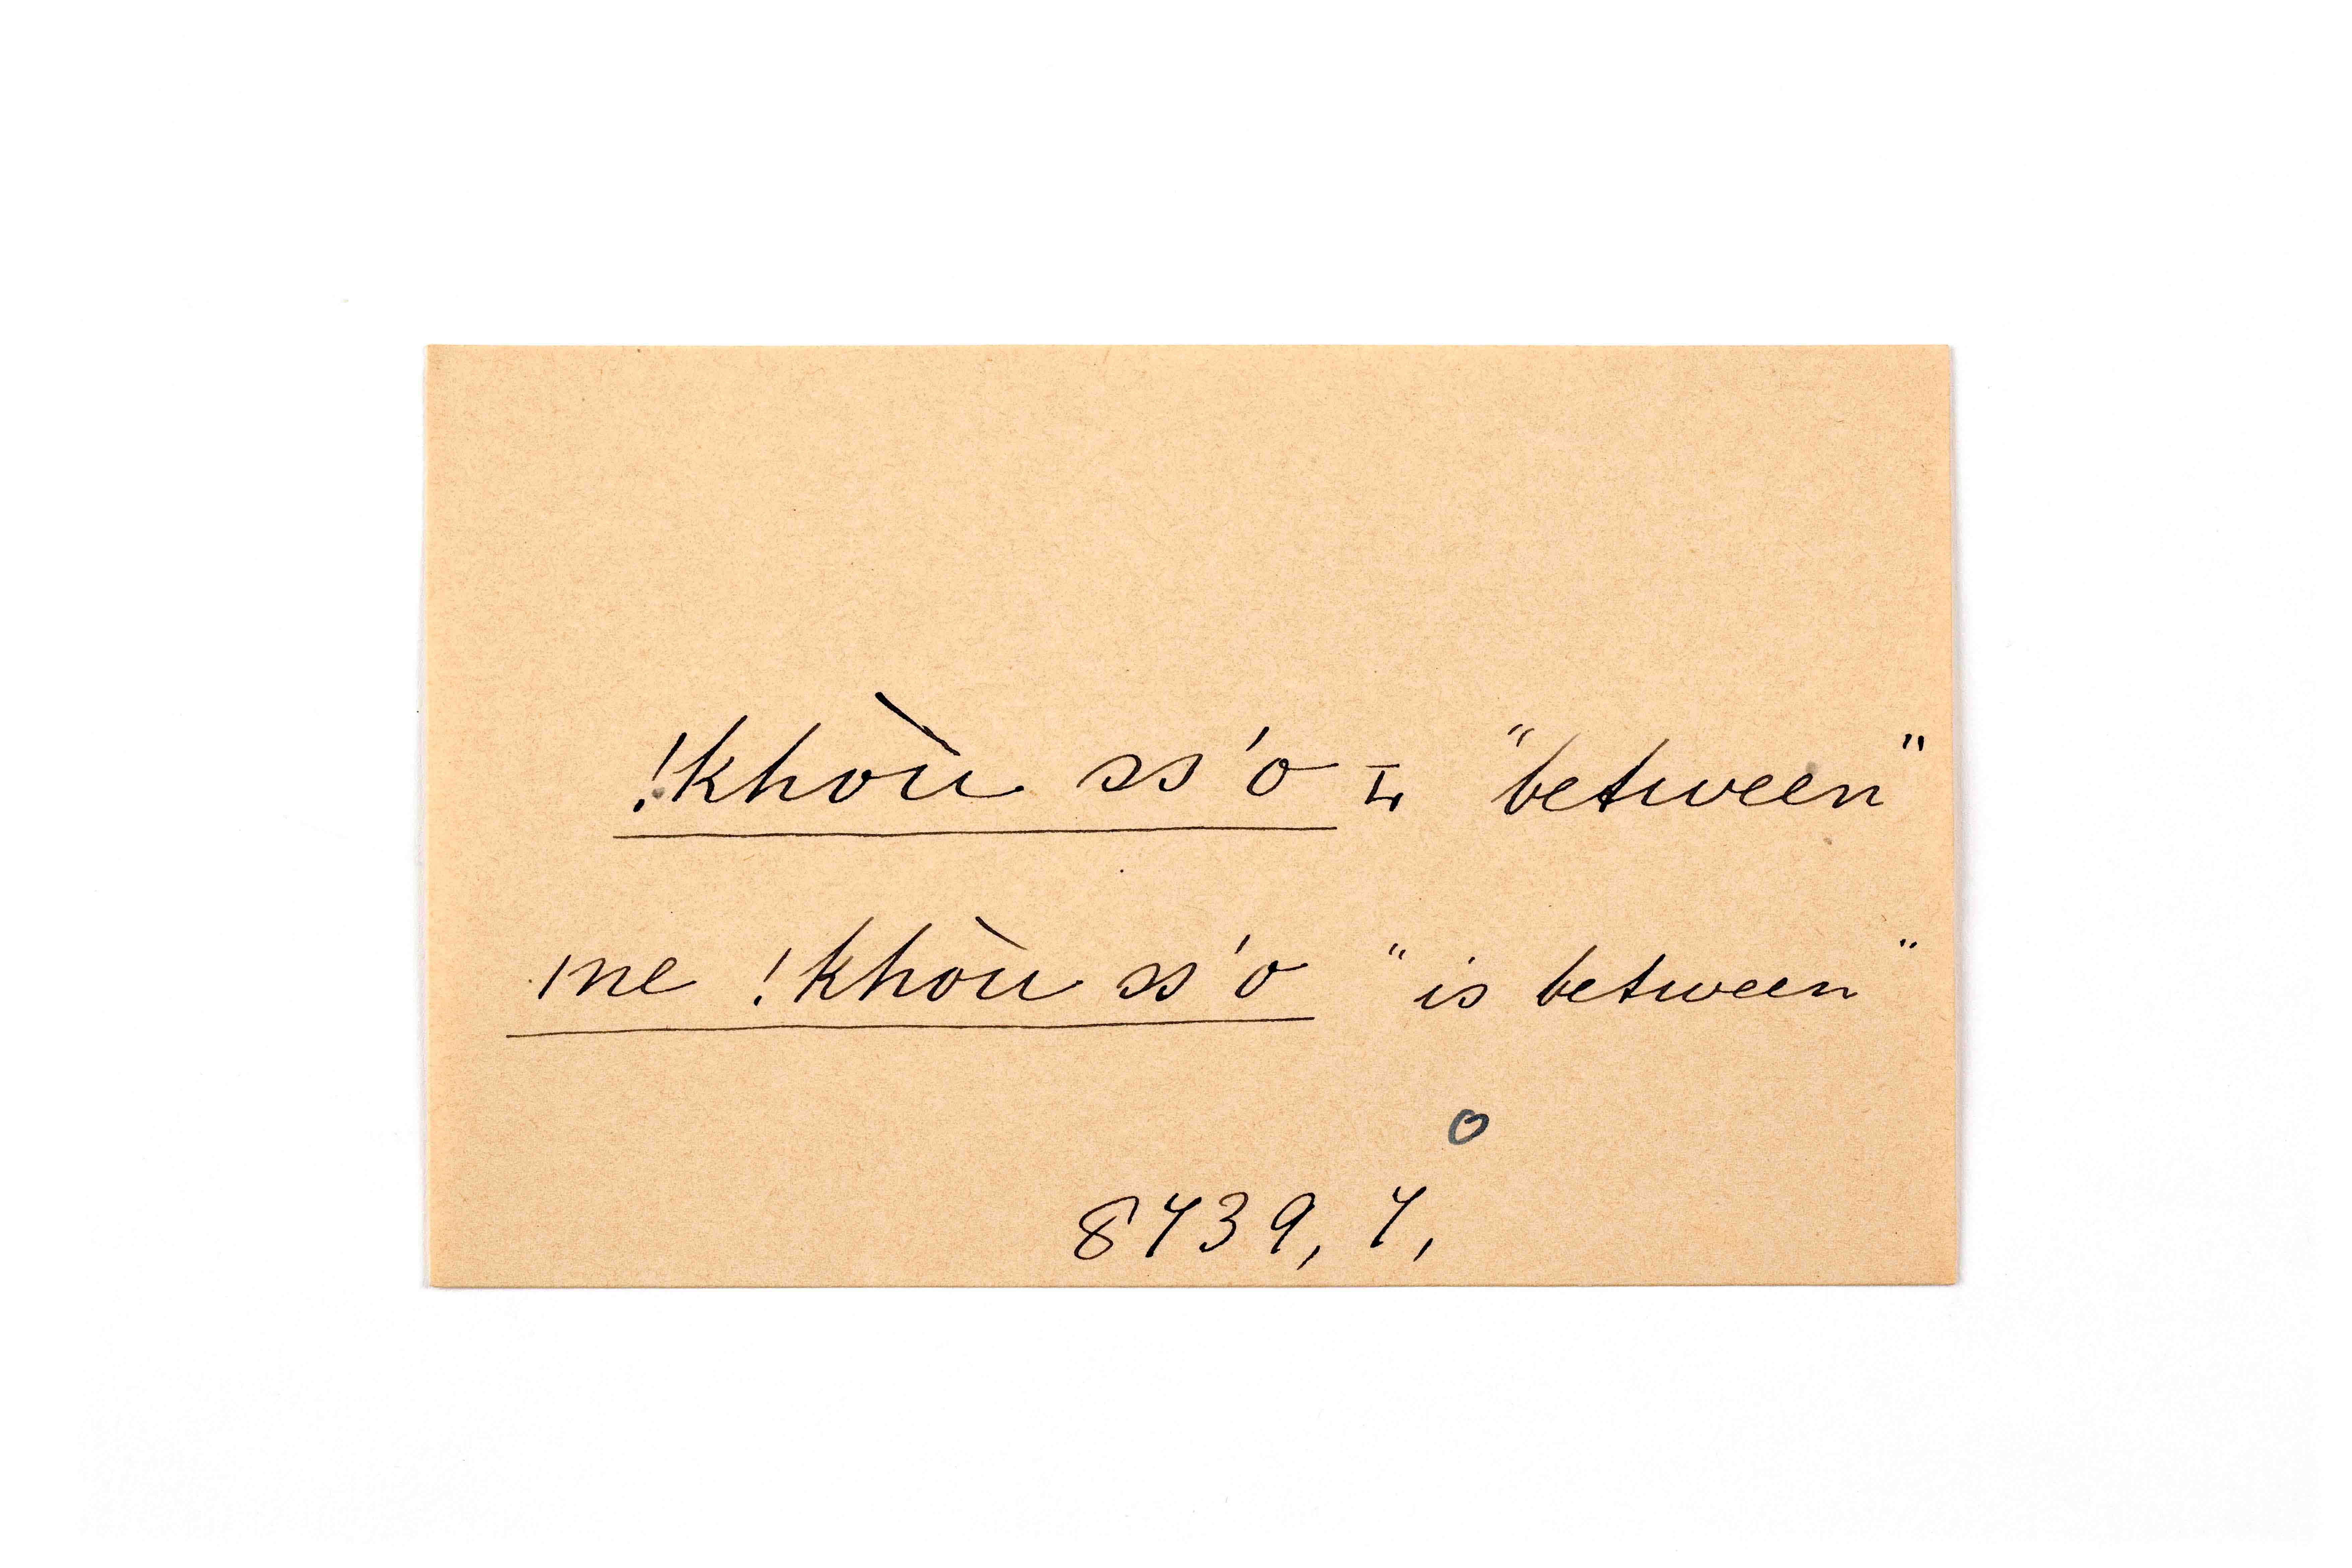 !khòu ss'o = "between"
ǀne !khòu ss'o "is between"
o
8439, 4,